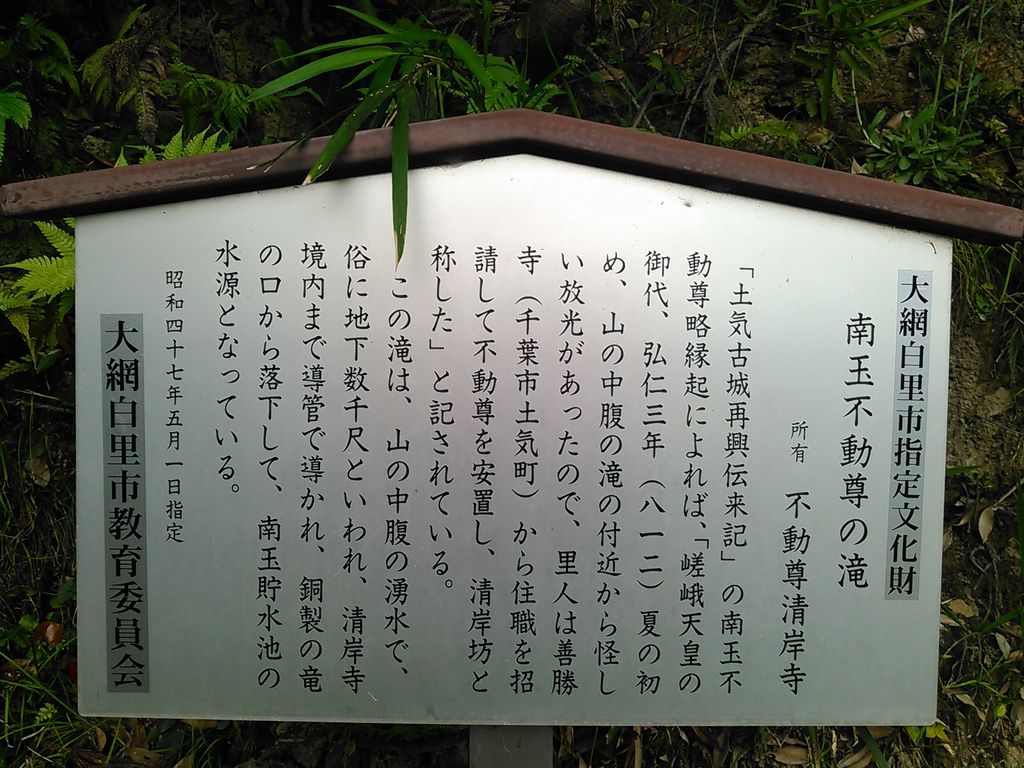 大網白里市指定文化財
南玉不動尊の滝
所有　不動尊清岸寺
「土気古城再興伝来記」の南玉不
動尊略縁起によれば、「嵯峨天皇の
御代、弘仁三年（八一二）夏の初
め、山の中腹の滝の付近から怪し
い放光があったので、里人は善勝
寺（千葉市土気町）から住職を招
請して不動尊を安置し、清岸坊と
称した」と記されている。
この滝は、山の中腹の湧水で、
俗に地下数千尺といわれ、清岸寺
境内まで導管で導かれ、銅製の竜
の口から落下して、南玉貯水池の
水源となっている。
昭和四十七年五月一日指定
大網白里市教育委員会